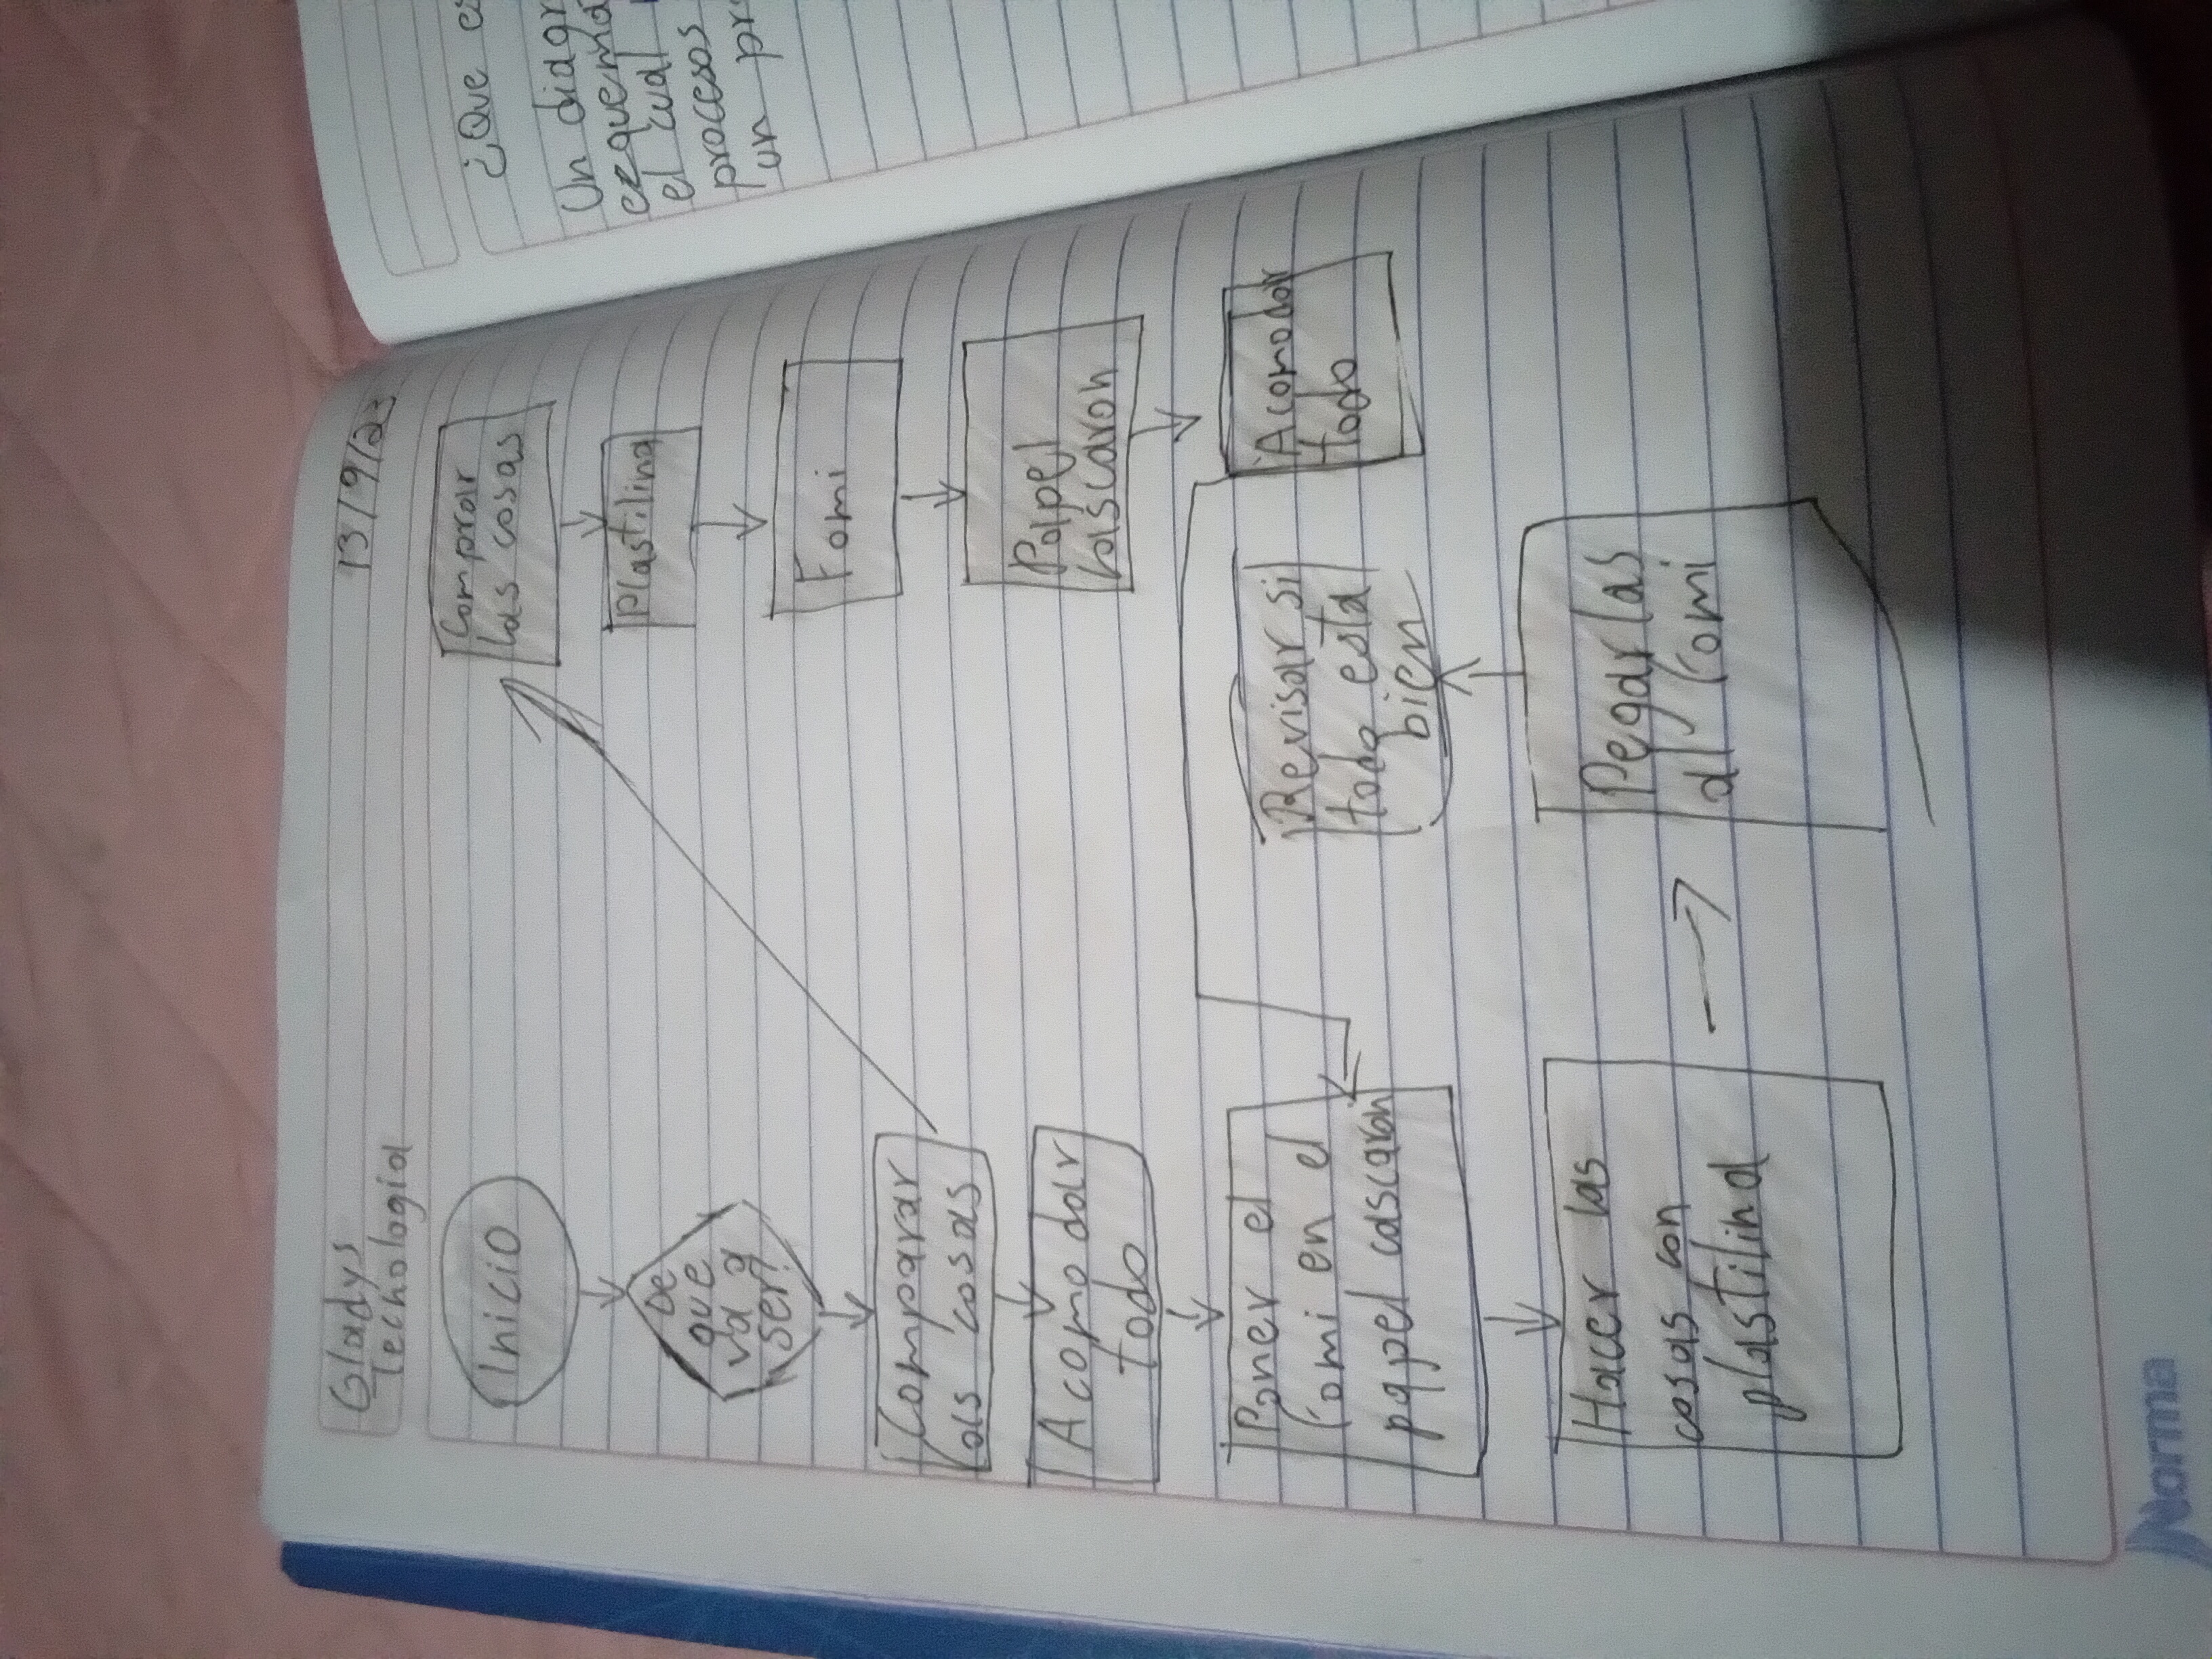 Gladys
Techologia
13/9/23
Inicio
De
que
va a
ser?
Comparar
las cosas
Acomodar
todo
Poner el
fomi en el
papel cascaron
Hacer las
cosas con
plastilina
Comprar
las cosas
Plastilina
Fomi
Papel
cascaron
Acomodar
todo
Revisar si
todo esta
bien
Pegar las
al fomi
¿Que es
Un diagr
ezquema
el cual
procesos
un pr
Norma